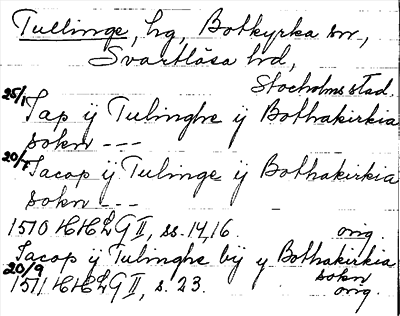 Tullinge, hg, Botkyrka sn,
Svartlösa hd,
Stockholms stad.
25/1 Jap ÿ Tulinghe ÿ Bothakirkia
sokn ---
20/7 Jacop ÿ Tulinge ÿ Bothakirkia
sokn ---
1510 HHLG II, ss. 14,16. orig.
Jacop ÿ Tulinghe bÿ y Bothakirkia
sokn
20/9 1511 HHLG II, s. 23. orig.